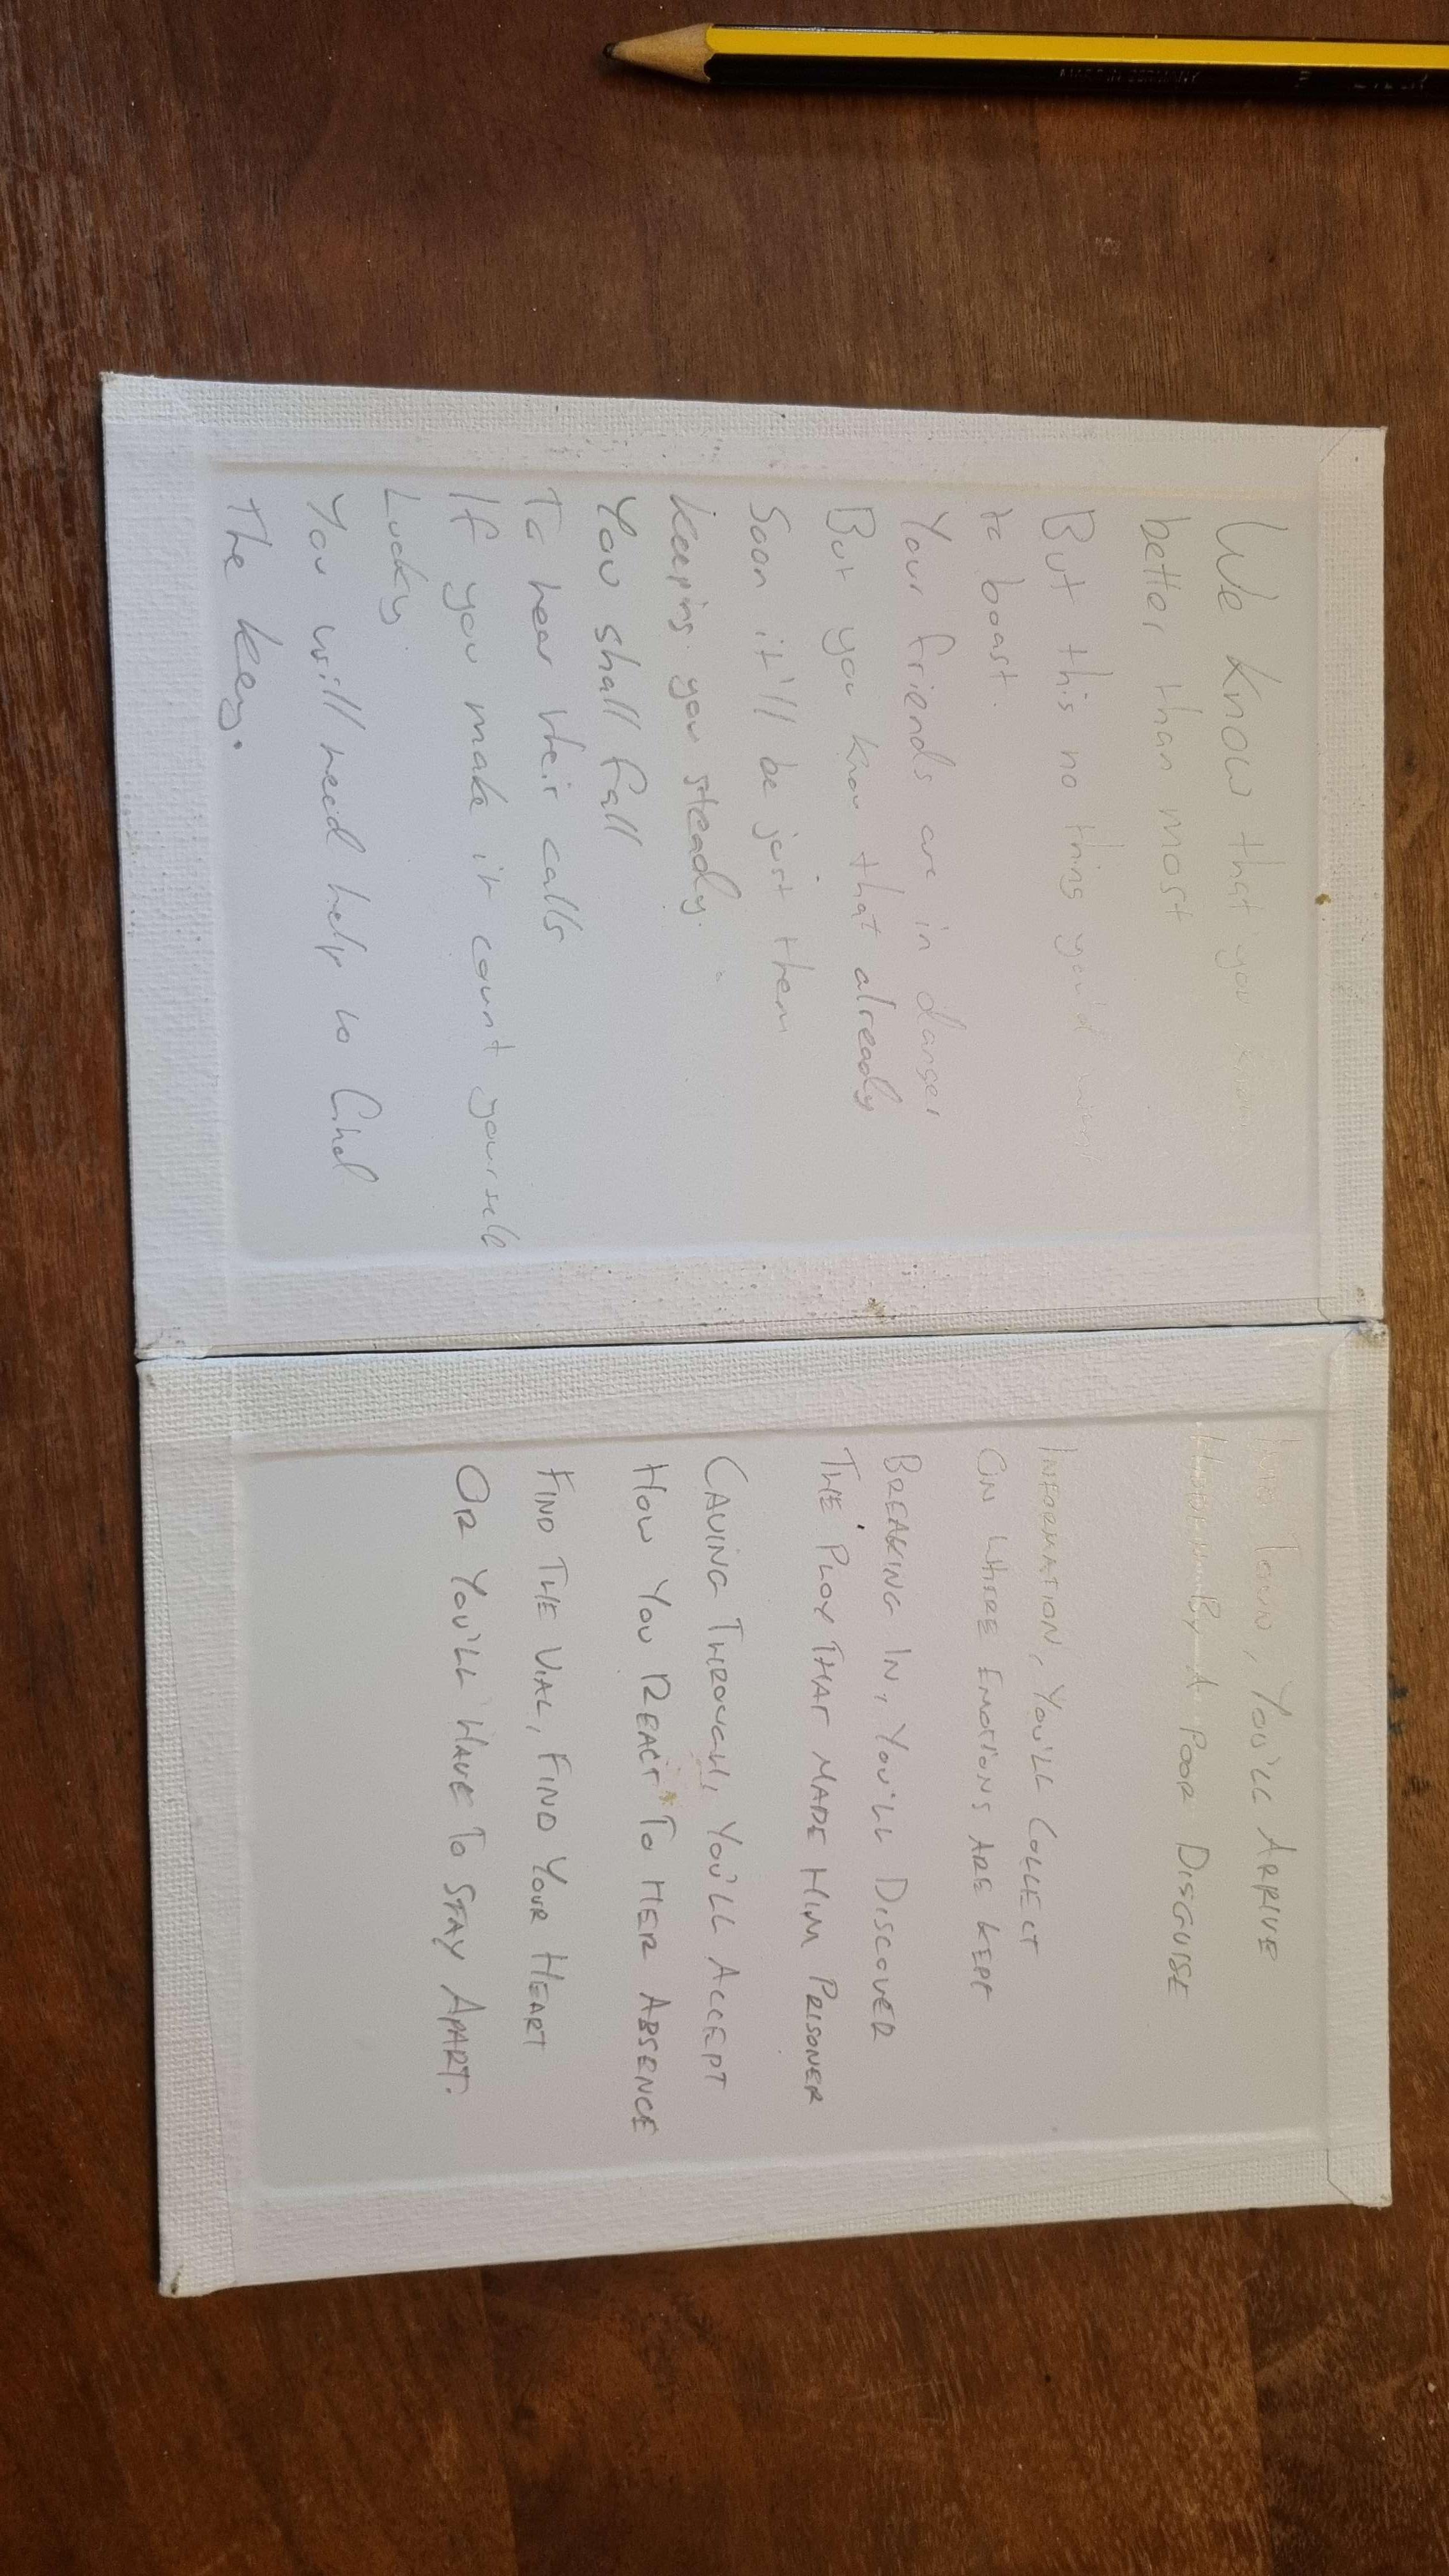 We know that you know
better than most
But this no thing you'd want
to boast.
Your friends are in danger
But you know that already
Soon it'll be just them
keeping you steady.
You shall fall
To hear their calls
If you make it count yourself
Lucky
You will need help to find
The key.
Town, You'll Arrive
By A Poor Disguise
Information, You'll Collect
On Where Emotions Are Kept
Breaking In, You'll Discover
The Ploy That Made Him Prisoner
Caving Through, You'll Accept
How You React To Her Absence
Find The Vial, Find Your Heart
Or You'll Have To Stay Apart.
MADE IN GERMANY